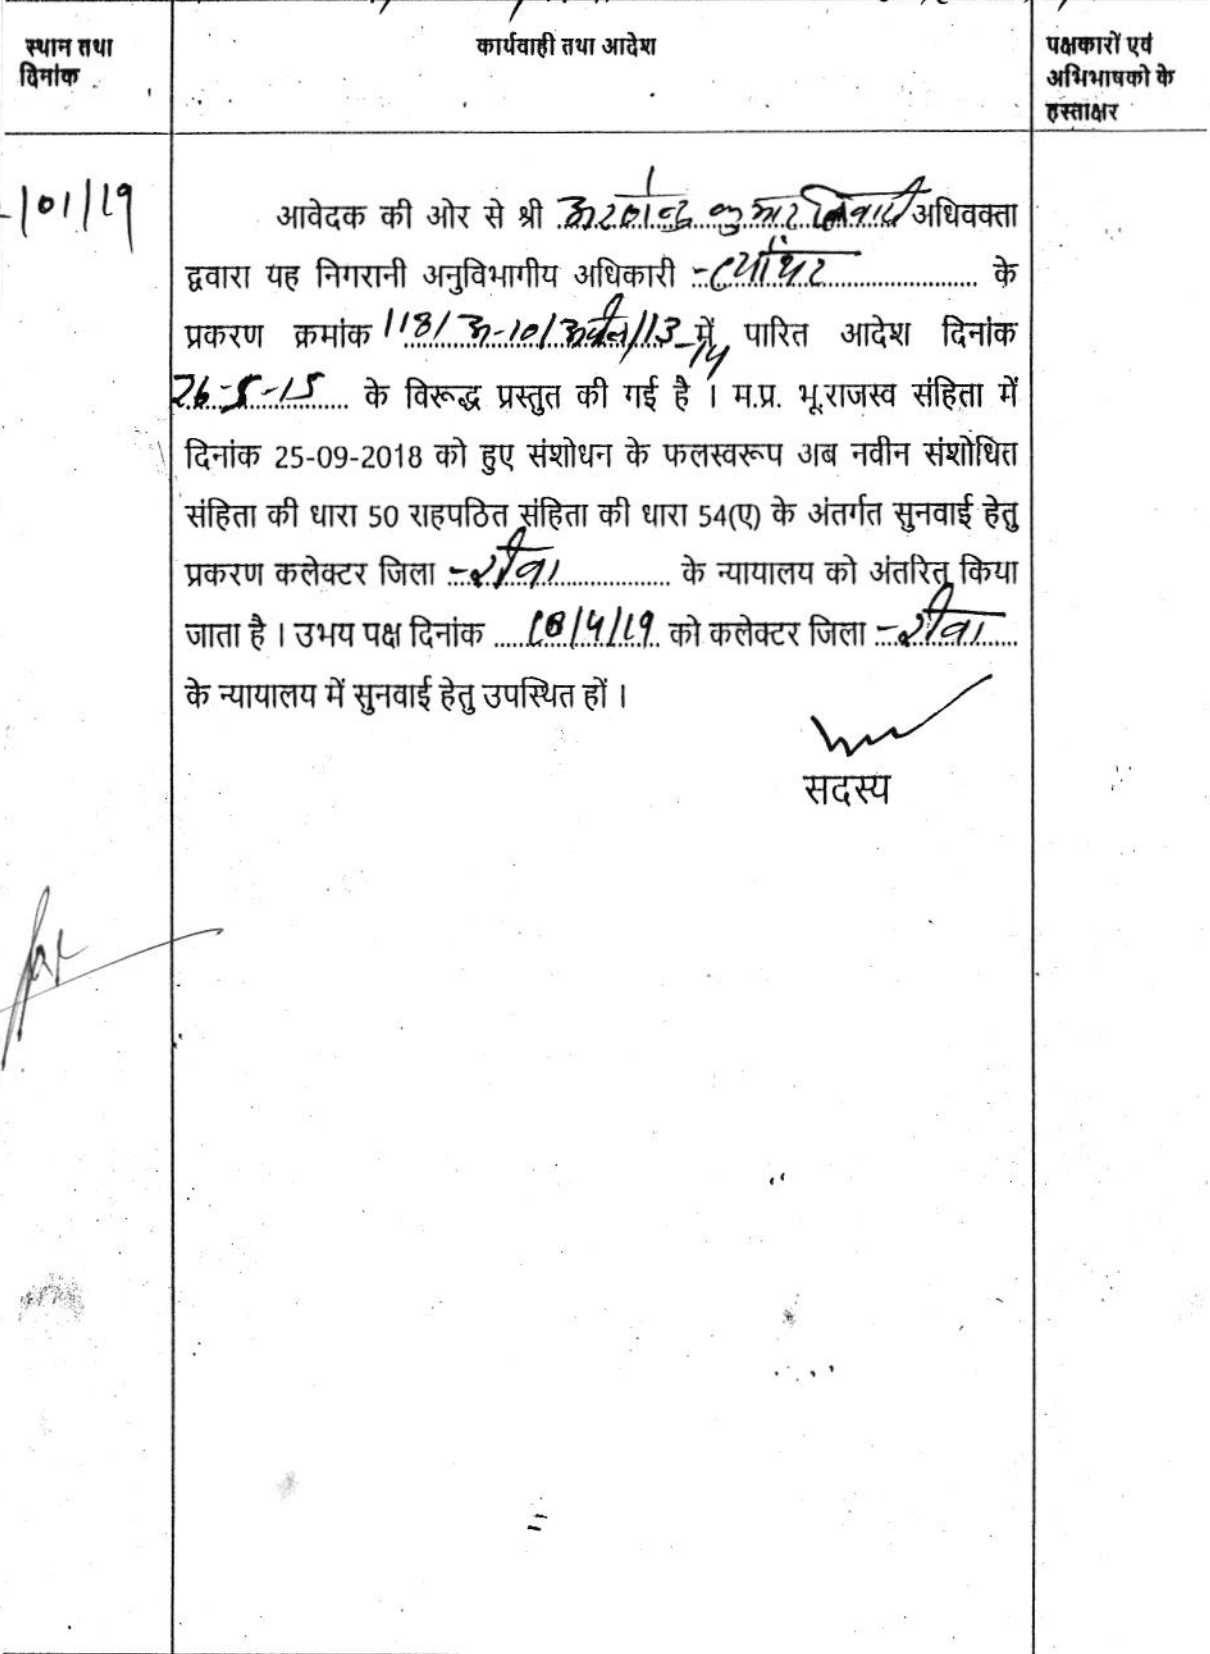 स्थान तथा
दिनांक
कार्यवाही तथा आदेश
पक्षकारों एवं
अभिभाषको के
हस्ताक्षर
/01/19
आवेदक की ओर से श्री कुमार तिवारी अधिवक्ता
द्ववारा यह निगरानी अनुविभागीय अधिकारी - त्योंथर के
प्रकरण क्रमांक 118/अ-10/अपील/13-14 में पारित आदेश दिनांक
26-5-15 के विरूद्ध प्रस्तुत की गई है । म.प्र. भू.राजस्व संहिता में
दिनांक 25-09-2018 को हुए संशोधन के फलस्वरूप अब नवीन संशोधित
संहिता की धारा 50 राहपठित संहिता की धारा 54(ए) के अंतर्गत सुनवाई हेतु
प्रकरण कलेक्टर जिला - रीवा के न्यायालय को अंतरित किया
जाता है । उभय पक्ष दिनांक 18/4/19 को कलेक्टर जिला - रीवा
के न्यायालय में सुनवाई हेतु उपस्थित हों ।
सदस्य